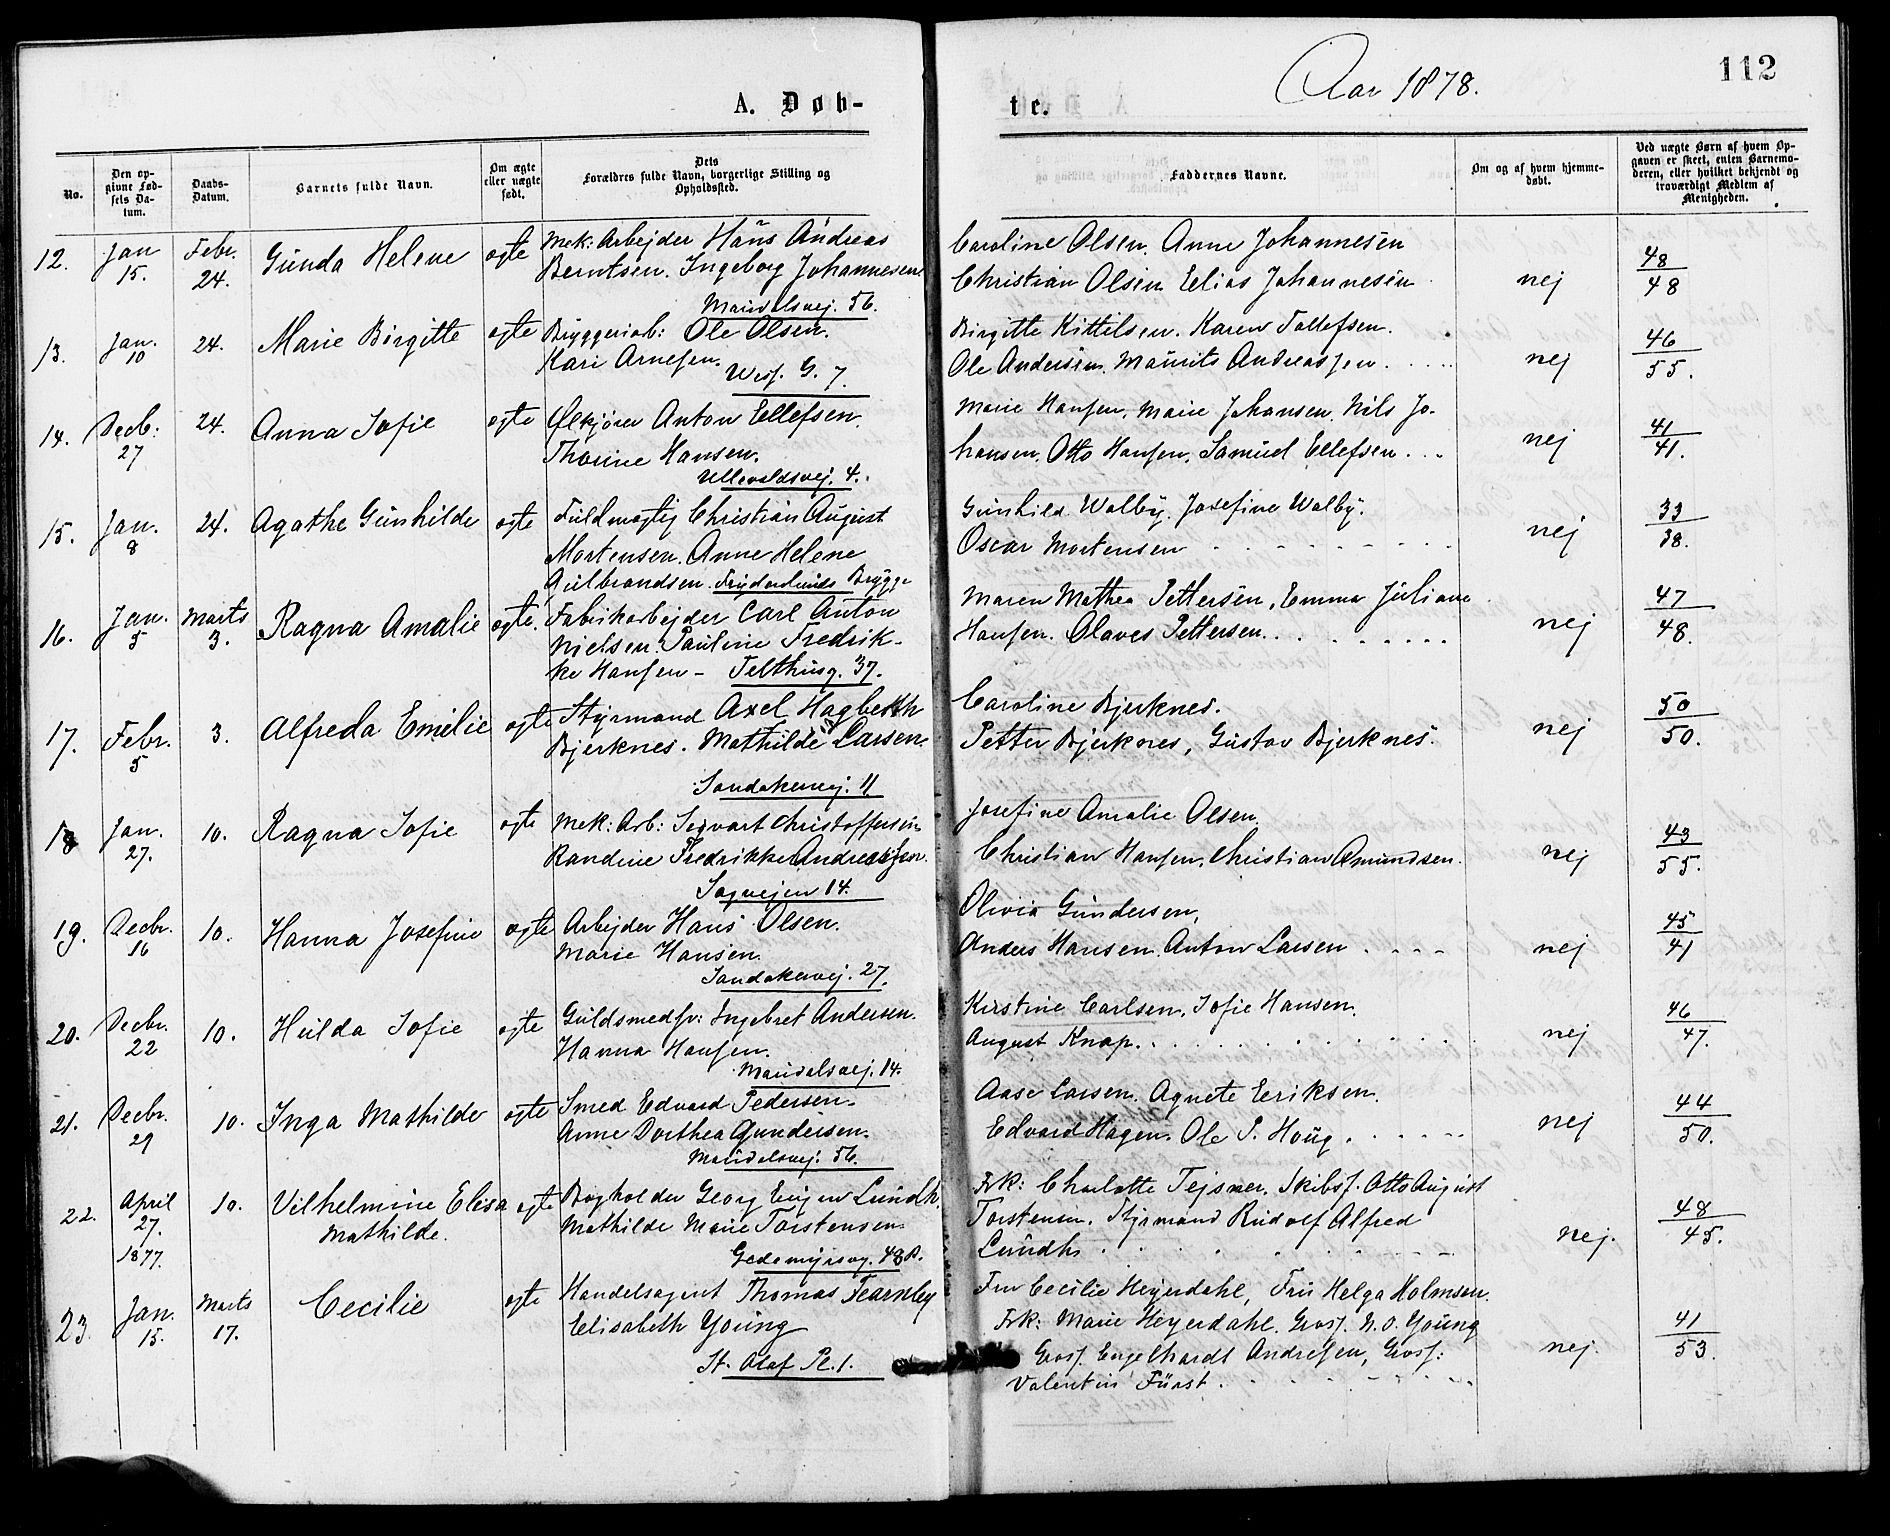 A. Døb-
te.
Aar 1878.
112
No.
Den op-
givne Fød-
sels Da-
tum.
Daabs-
Datum.
Barnets fulde Navn.
Om ægte
eller uægte
født.
Dets
Forældres fulde Navn, borgerlige Stilling og
Opholdssted.
Faddernes Navne.
Om og af hvem hjemme-
døbt.
Ved uægte Børn af hvem Op-
gaven er skeet, enten Barnemo-
deren, eller hvilket bekjendt og
troværdigt Medlem af
Menigheden.
12. Jan 15. Febr. 24. Gunda Helene ægte
Mek: Arbejder Hans Andreas
Berntsen. Ingeborg Johannesen
Maridalsvej. 56.
Caroline Olsen. Anne Johannesen
Christian Olsen Elias Johannesen
nej
48/48
13. Jan. 10 24. Marie Birgitte ægte
Bryggeriarb: Ole Olsen.
Kari Arnesen.
Wess. G. 7.
Birgitte Kittilsen. Karen Tollefsen.
Ole Andersen. Maurits Andreassen.....
nej
46/55.
14. Decb: 27 24. Anna Sofie ægte
Ølkjører Anton Ellefsen.
Thorine Hansen.
Ullevoldsvej. 4.
Marie Hansen. Marie Johansen. Nils Jo-
hansen. Otto Hansen. Samuel Ellefsen...
nej
41/41.
15. Jan. 8 24. Agathe Gunhilde ægte
Fuldmægtig Christian August
Mortensen. Anne Helene
Gulbrandsen. Frydenlunds Brygge
Gunhild Walby. Josefine Walby.
Oscar Mortensen
nej
33/38.
16. Jan. 5 Marts 3. Ragna Amalie ægte.
Fabrikarbejder Carl Anton
Nielsen. Pauline Fredrik-
ke Hansen - Telthusg. 37.
Maren Mathea Pettersen, Emma Juliane
Hansen. Olaves Pettersen.
nej
47/48.
17. Febr. 5 3. Alfreda Emelie ægte
Styrmand Axel Hagbarth
Bjerknes. Mathilde Larsen.
Sandakervej. 11
Caroline Bjerknes.
Petter Bjerknes, Gustav Bjerknes.
nej
50/50.
18 Jan. 27. 10. Ragna Sofie ægte
Mek: Arb: Sigvart Christoffersen
Randine Fredrikke Andreassen.
Sagvejen 14.
Josefine Amalie Olsen.
Christian Hansen. Christian Amundsen.
nej
43/55.
19. Decbr. 16 10. Hanna Josefine ægte
Arbejder Hans Olsen.
Marie Hansen.
Sandakervej. 27.
Olivia Gundersen,
Anders Hansen. Anton Larsen
nej
45/41
20. Decbr. 22 10. Hulda Sofie ægte
Guldsmedsv: Ingebret Andersen.
Hanna Hansen.
Maridalsvej. 14.
Kirstine Carlsen, Sofie Hansen.
August Knap.
nej
46/47.
21. Decbr. 29 10. Inga Mathilde ægte
Smed Edvard Pedersen.
Anne Dorthea Gundersen.
Maridalsvej. 56.
Aase Larsen. Agnete Eriksen.
Edvard Hagen. Ole P. Houg
nej
44/50.
22. April 27. 1877. 10. Vilhelmine Elisa ægte
Mathilde.
Bogholder Georg Eugen Lundh.
Mathilde Marie Torstensen.
Gedemyrsvg. 48 B.
Frk: Charlotte Tejsner. Skibsf. Otto August
Torstensen. Styrmand Rudolf Alfred
Lundh
nej.
48/45.
23. Jan. 15. Marts 17. Cecilie ægte
Handelsagent Thomas Fearnley
Elisabeth Young
St. Olaf Pl. 1.
Fru Cecilie Heyerdahl, Fru Helga Holmsen.
Frk: Marie Heyerdahl. Gross. N. O. Young
Gross. Engelhardt Andresen, Gross:
Valentin Fürst.
nej.
41/53.